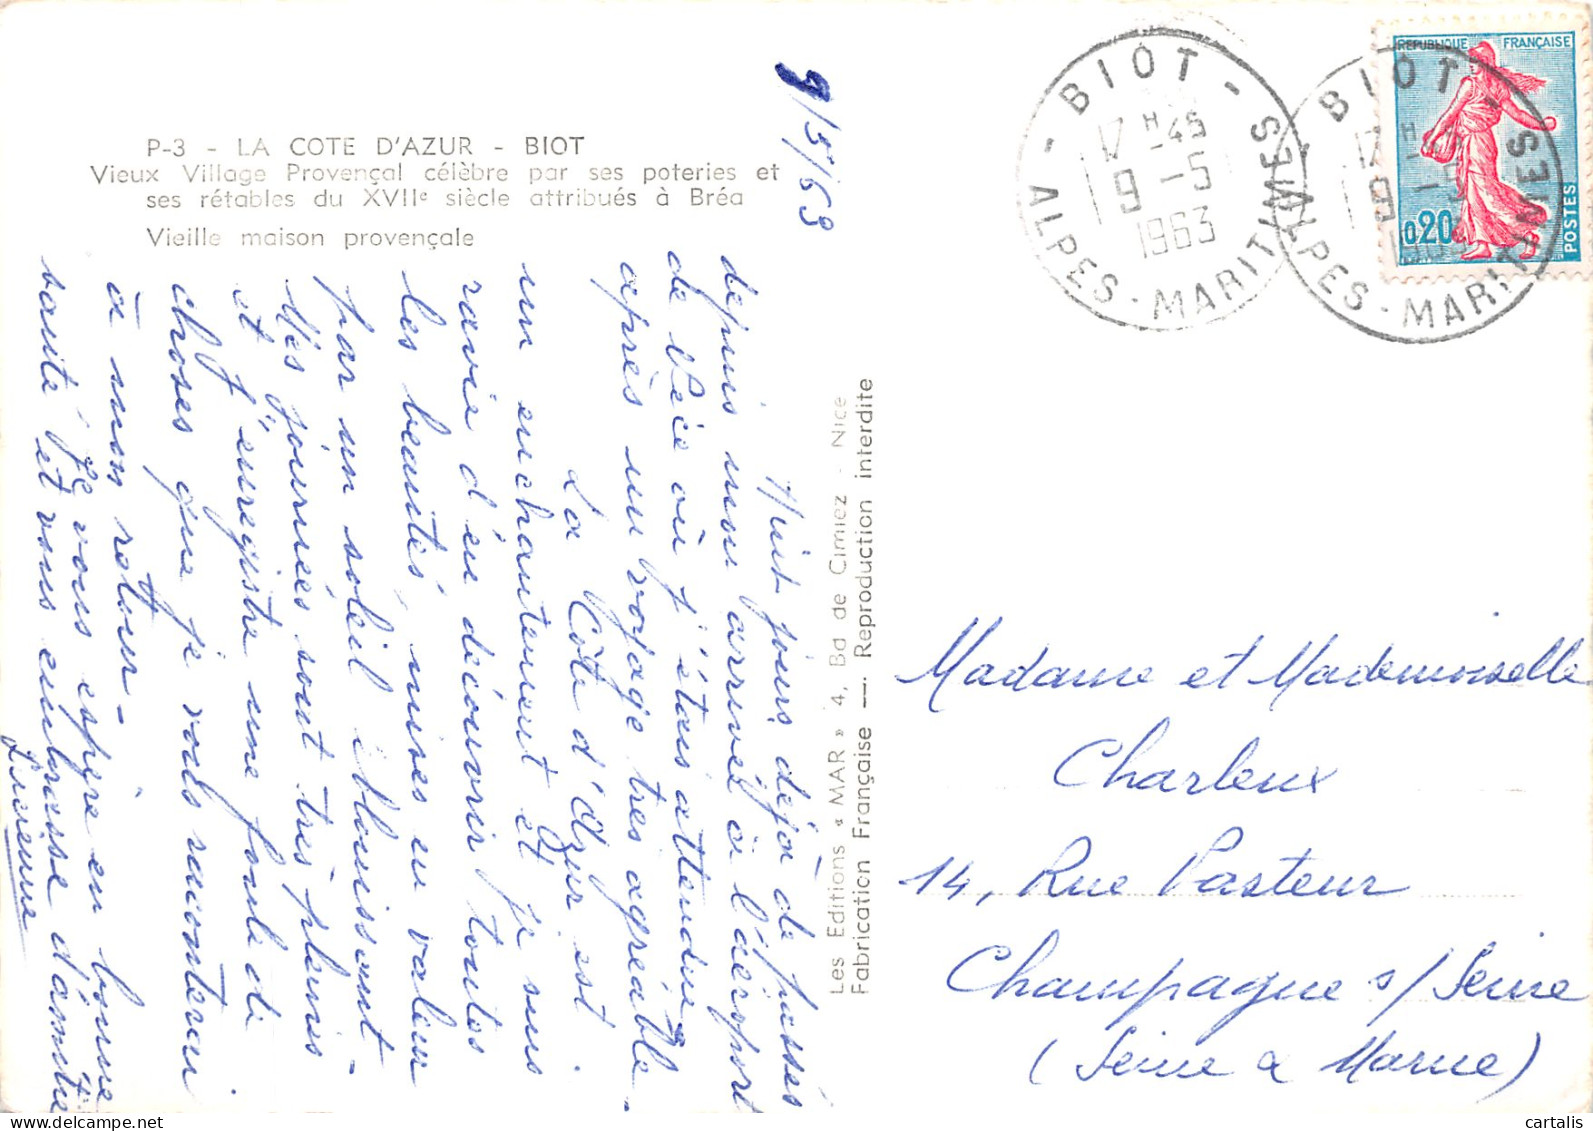 P-3 - LA COTE D'AZUR - BIOT
Vieux Village Provençal célèbre par ses poteries et
ses rétables du XVIIe siècle attribués à Bréa
Vieille maison provençale
9/5/63
Huit jours déjà de passés
depuis mon arrivée à l'aéroport
de Nice où j'étais attendue
après un voyage très agréable.
La Côte d'Azur est
un enchantement et je suis
ravie d'en découvrir toutes
les beautés, mises en valeur
par un soleil éblouissant -
Mes journées sont très pleines
et j'enregistre une foule de
choses que je vous raconterai
à mon retour -
Je vous espère en bonne
santé et vous embrasse d'amitié
Lucienne
Les Editions « MAR » 4, Bd de Cimiez - Nice
Fabrication Française —. Reproduction interdite
BIOT
17 H -45
9 -5
1963
ALPES-MARITIMES
BIOT
17 H -45
9 -5
1963
ALPES-MARITIMES
REPUBLIQUE FRANÇAISE
0,20
POSTES
Madame et Mademoiselle
Charleux
14, Rue Pasteur
Champagne s/ Seine
(Seine & Marne)
cartalis